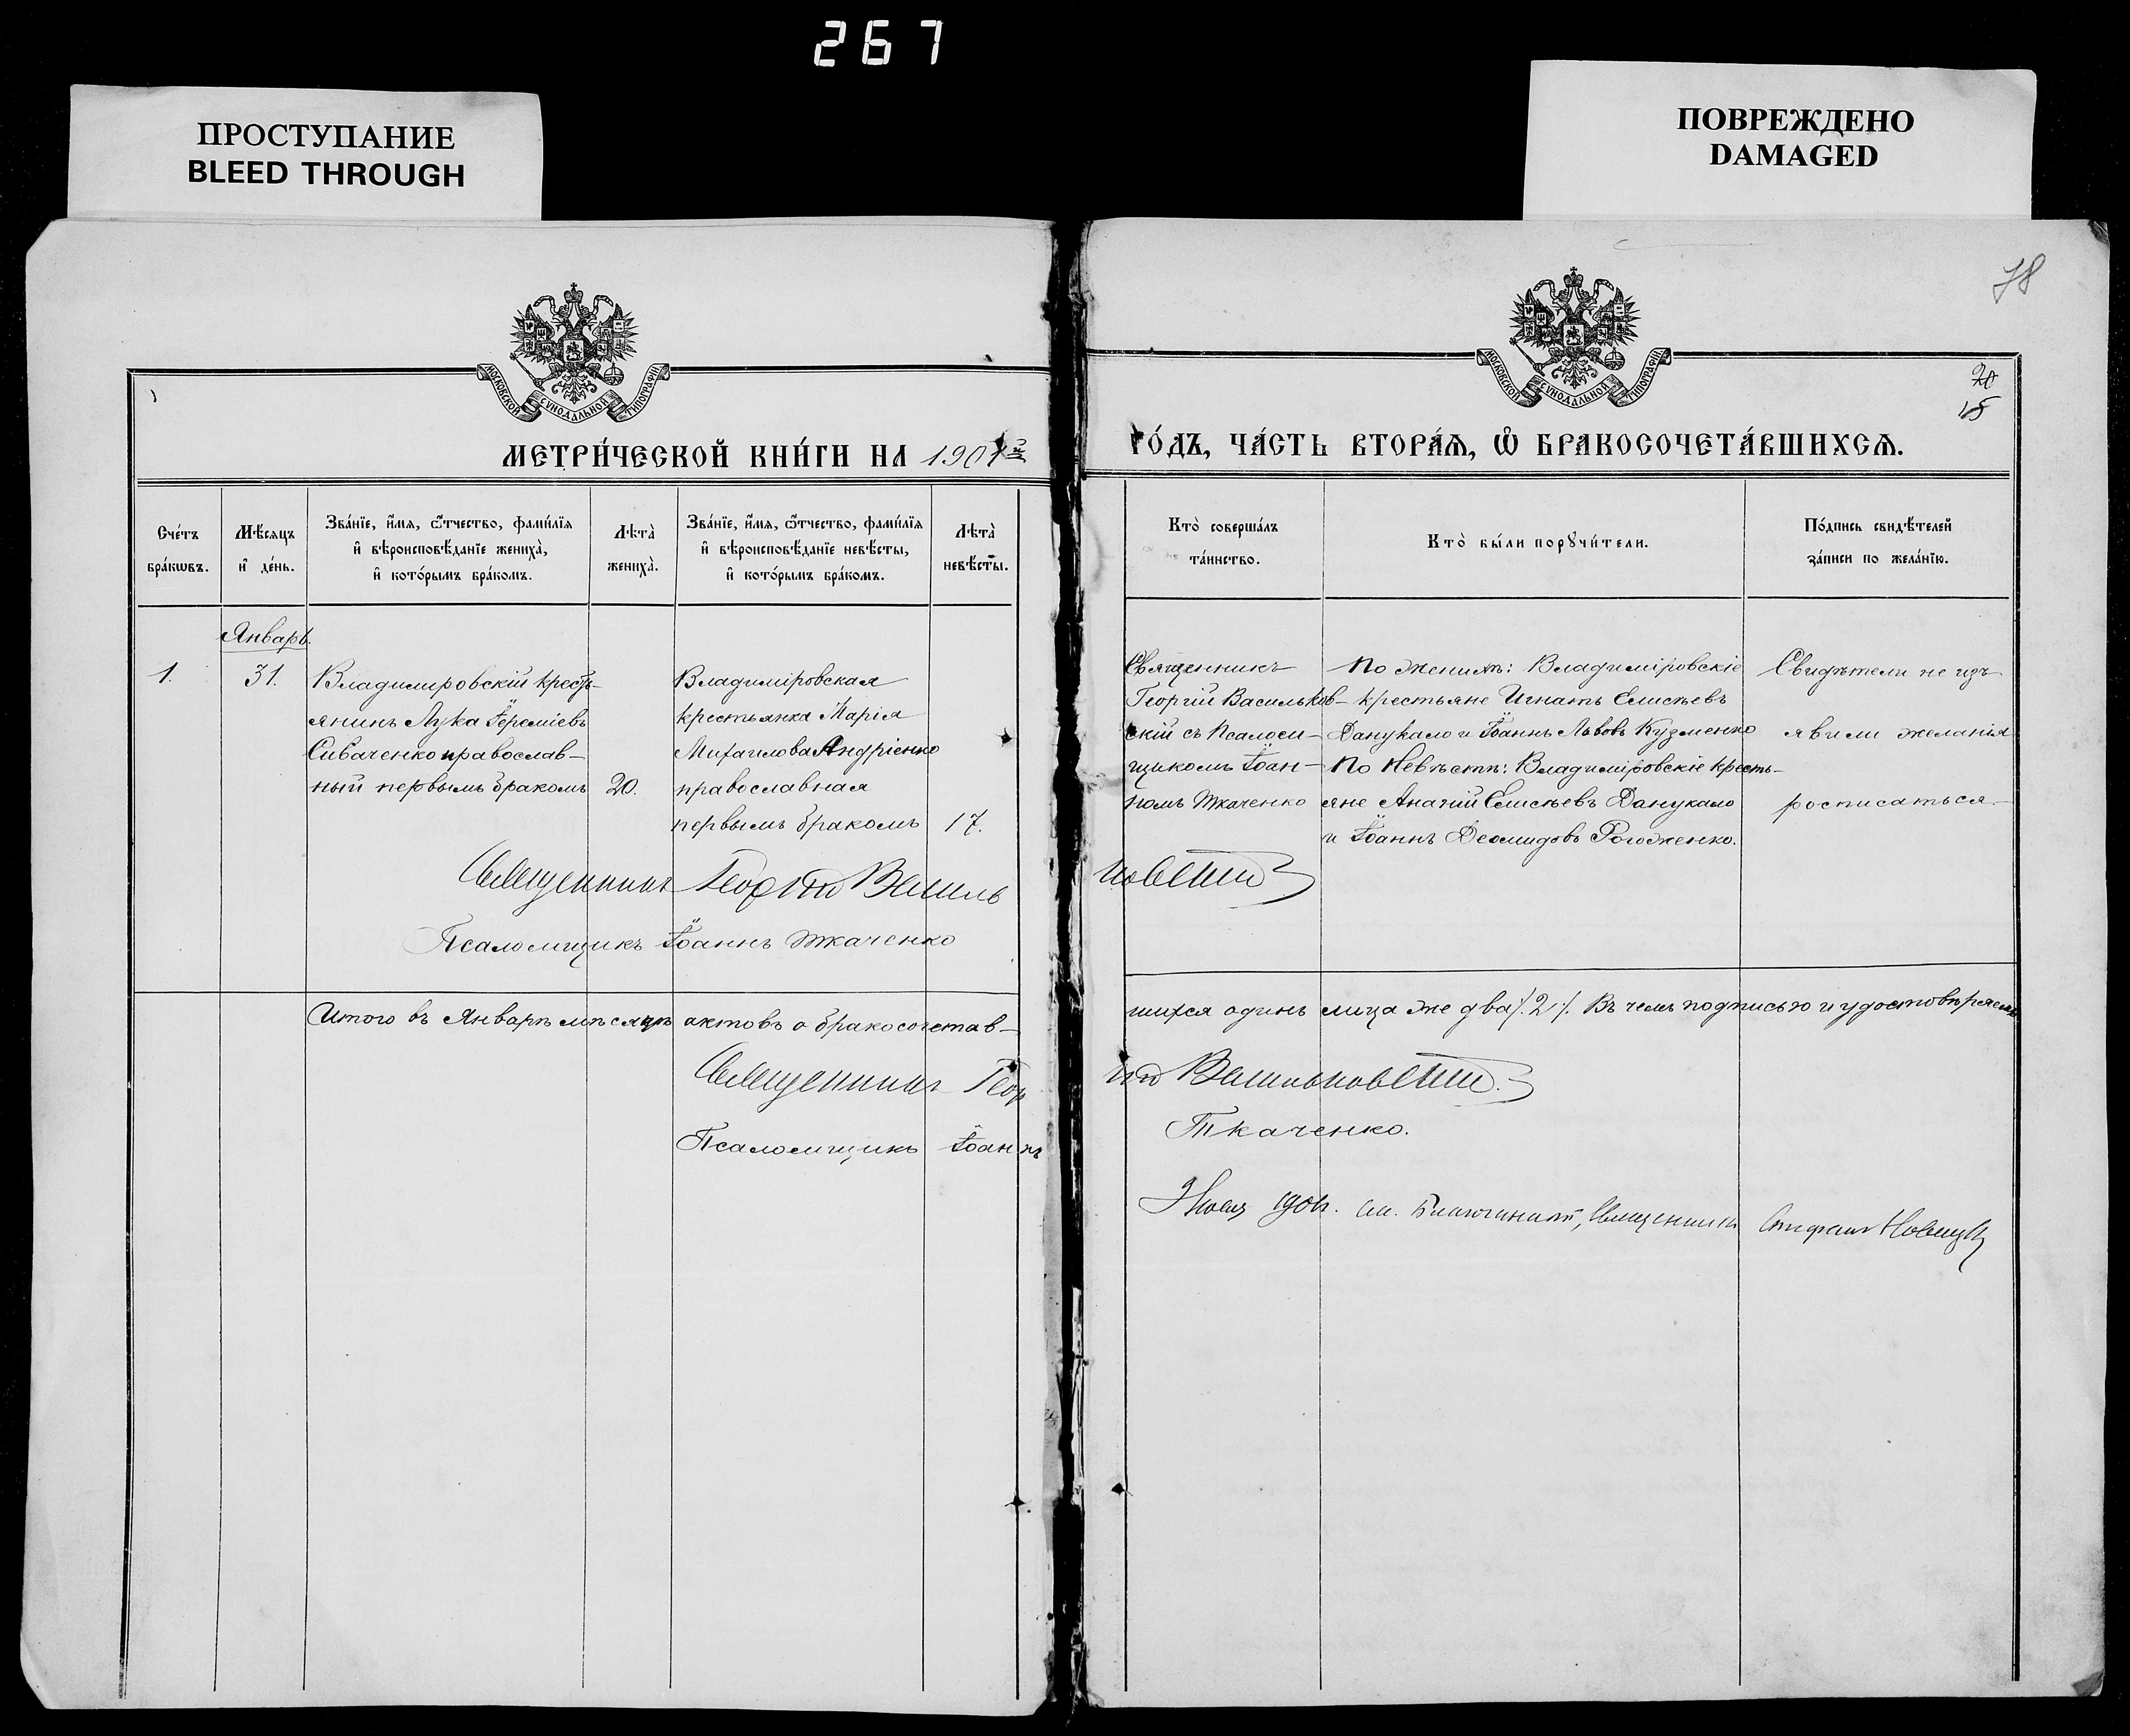 267
ПРОСТУПАНИЕ
BLEED THROUGH
ПОВРЕЖДЕНО
DAMAGED
78
МОСКОВСКОЙ СѴНОДАЛЬНОЙ ТИПОГРАФІИ
МОСКОВСКОЙ СѴНОДАЛЬНОЙ ТИПОГРАФІИ
20
18
МЕТРИ́ЧЕСКОЙ КНИ́ГИ НА 1901й
ГО́ДЪ, ЧА́СТЬ ВТОРА́Ѧ, Ѽ БРАКОСОЧЕТА́ВШИХСѦ.
Сче́тъ бра́кѡвъ.
Мѣ́сяцъ и҆ де́нь.
Зва́нїе, и҆́мя, ѻ҆́тчество, фами́лїя и҆ вѣроисповѣ́данїе жениха̀, и҆ кото́рымъ бра́комъ.
Лѣта̀ жениха̀.
Зва́нїе, и҆́мя, ѻ҆́тчество, фами́лїя и҆ вѣроисповѣ́данїе невѣ́сты, и҆ кото́рымъ бра́комъ.
Лѣта̀ невѣ́сты.
Кто̀ соверша́лъ та́инство.
Кто̀ бы́ли порꙋчи́тели.
По́дпись свидѣ́телей за́писи по жела́нїю.
Январь.
1.
31.
Владиміровскій кресть-
янинъ Лука Іереміевъ
Сиваченко православ-
ный первымъ бракомъ
20.
Владиміровская
крестьянка Марія
Михаилова Андріенко
православная
первымъ бракомъ
17.
Священникъ
Георгій Васильков-
скій съ Псалом-
щикомъ Іоан-
номъ Ткаченко
По женихѣ: Владиміровскіе
крестьяне Игнатъ Елисѣевъ
Данукало и Іоаннъ Львовъ Кузменко
По Невѣстѣ: Владиміровскіе кресть-
яне Ананій Елисѣевъ Данукало
и Іоаннъ Деомидовъ Рогоженко.
Свидѣтели не изъ-
явили желанія
росписаться.
Священникъ Георгій Васильковскій
Псаломщикъ Іоаннъ Ткаченко
Итого въ Январѣ мѣсяцѣ актовъ о бракосочетав-
шихся одинъ лица же два /.2/. Въ чемъ подписью и удостовѣряемъ
Священникъ Георгій Васильковскій.
Псаломщикъ Іоаннъ Ткаченко.
Благочинный, Священникъ Стефанъ Новицкій